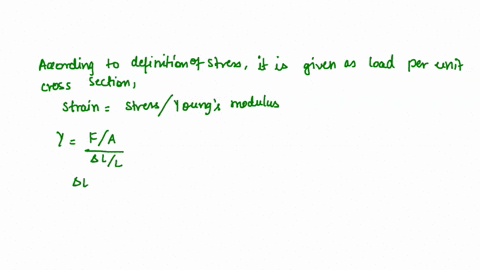 According to definition of stress, it is given as load per unit
cross section,
strain = stress/Young's modulus
Y = F/A
ΔL/L
ΔL